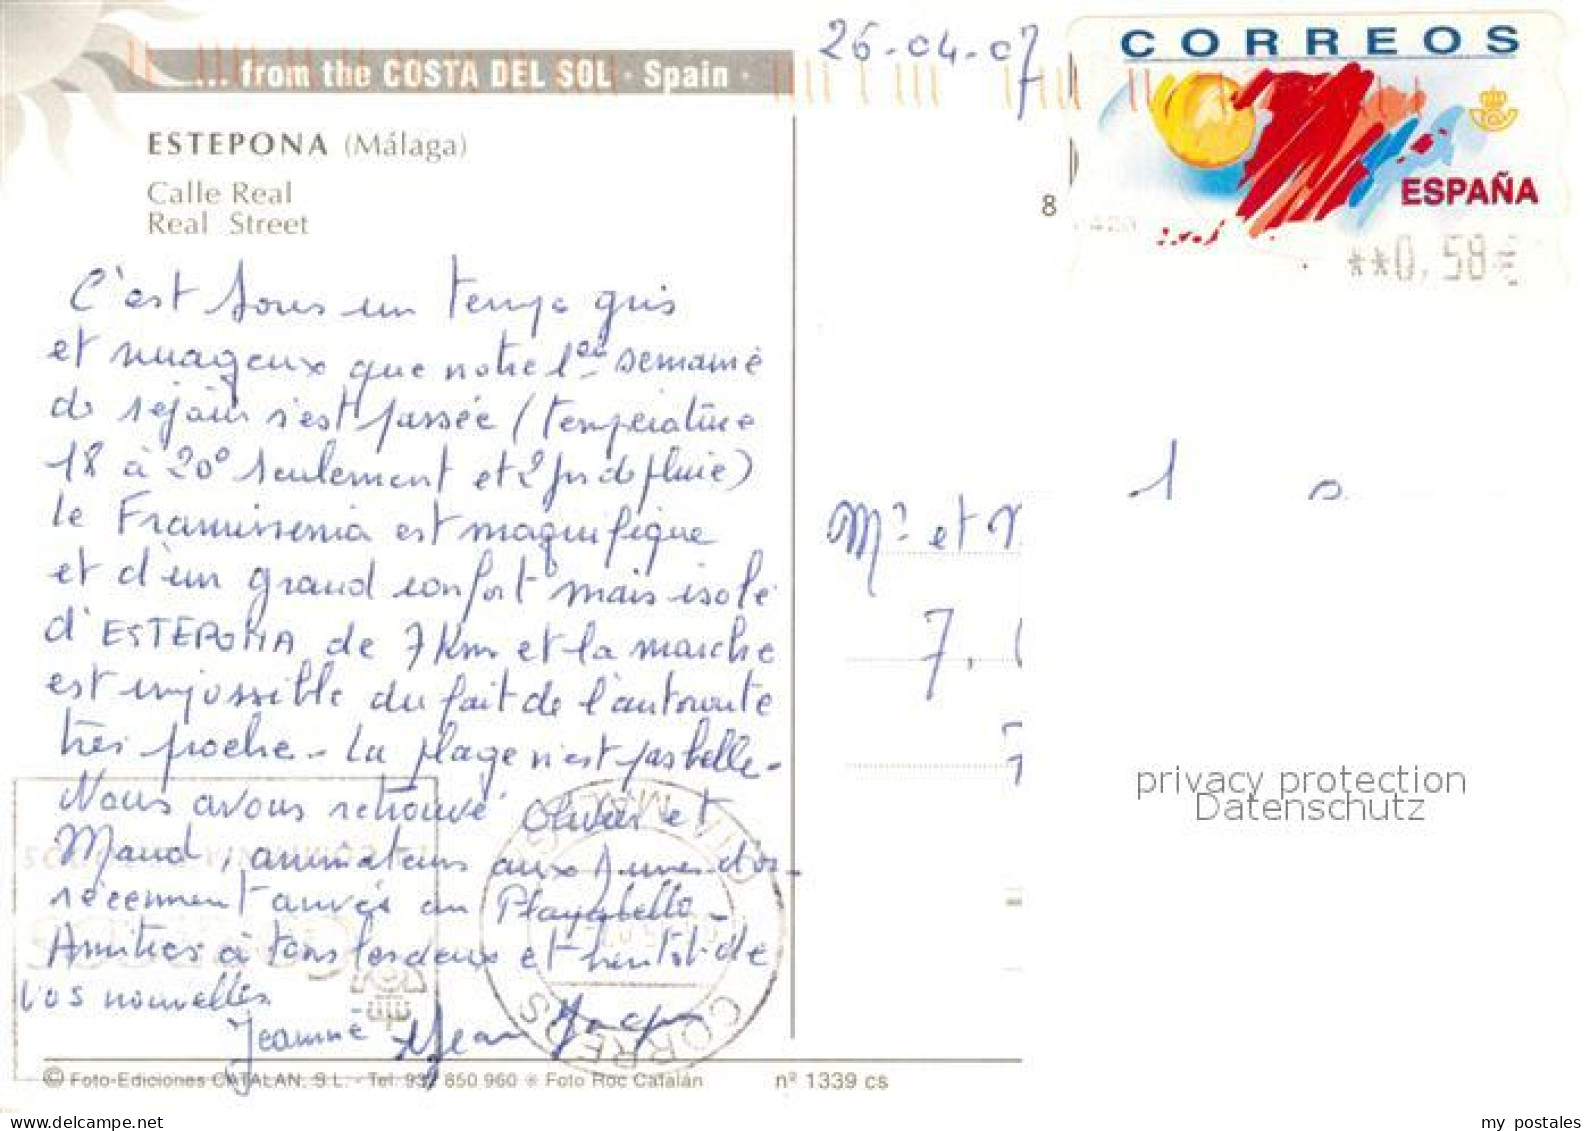 ... from the COSTA DEL SOL · Spain ·
26-04-07
CORREOS
ESPAÑA
**0,58€
8
ESTEPONA (Málaga)
Calle Real
Real Street
C'est sous un temps gris
et nuageux que notre 1ère semaine
de séjour s'est passée (température
18 à 20° seulement et 2 jrs de pluie)
le Framissenia est magnifique
et d'un grand confort mais isolé
d'ESTEPONA de 7 Km et la marche
est impossible du fait de l'autoroute
très proche - La plage n'est pas belle -
Nous avons retrouvé Olivier et
Maud, animateurs aux Dunes d'or -
récemment arrivés au Playabello -
Amitiés à tous les deux et bientôt de
vos nouvelles
Jeanne Jean Jacques
Mr et
7,
privacy protection
Datenschutz
CORREOS
© Foto-Ediciones CATALAN, S.L. - Tel. 937 850 960 * Foto Roc Catalán
nº 1339 cs
my postales